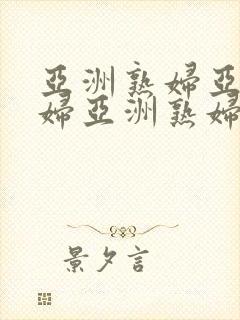 亞洲熟婦亞
婦亞洲熟婦
景夕言